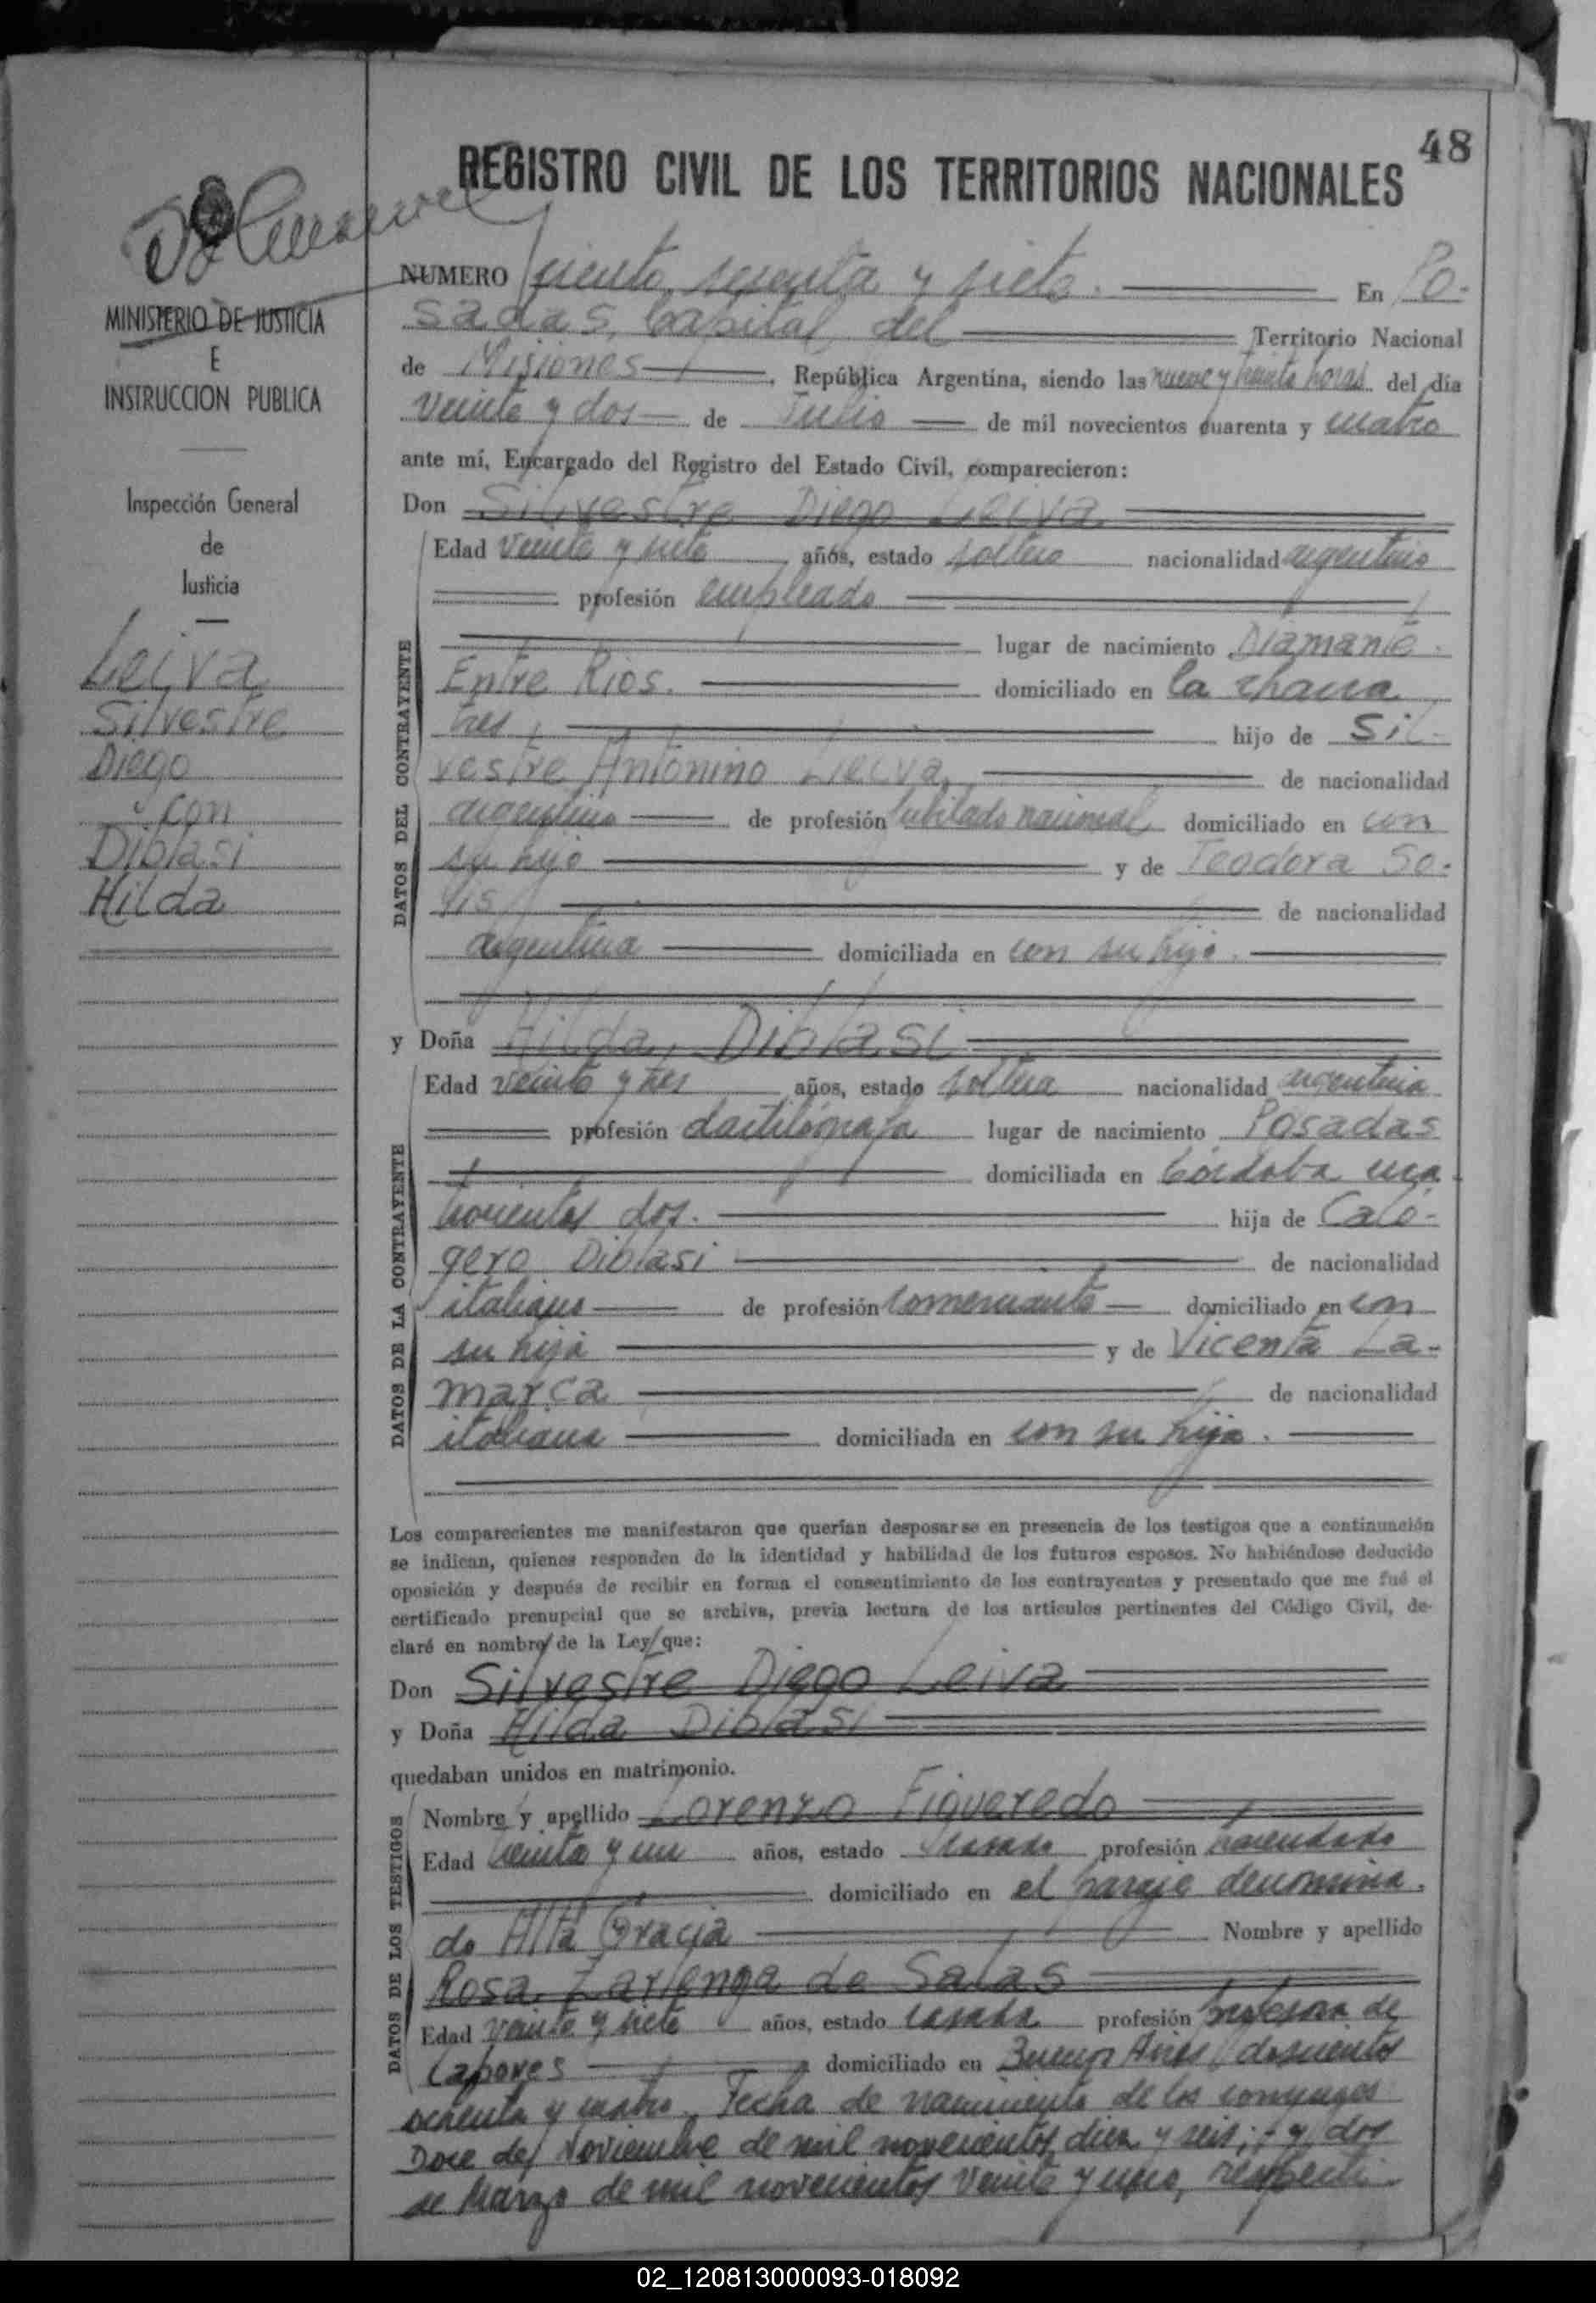 48
REGISTRO CIVIL DE LOS TERRITORIOS NACIONALES
MINISTERIO DE JUSTICIA
E
INSTRUCCION PUBLICA
Inspección General
de
Justicia
Leiva
Silvestre
Diego
con
Diblasi
Hilda
NUMERO ciento sesenta y siete. En Po-
sadas, Capital del Territorio Nacional
de Misiones, República Argentina, siendo las nueve y treinta horas del día
veinte y dos de Julio de mil novecientos cuarenta y cuatro
ante mí, Encargado del Registro del Estado Civil, comparecieron:
Don Silvestre Diego Leiva
Edad veinte y siete años, estado soltero nacionalidad argentino
profesión empleado
lugar de nacimiento Diamante.
Entre Rios. domiciliado en la chacra
tres, hijo de Sil-
vestre Antonino Leiva, de nacionalidad
argentino de profesión jubilado nacional domiciliado en con
su hijo y de Teodora So-
lis de nacionalidad
argentina domiciliada en con su hijo.
y Doña Hilda, Diblasi
Edad veinte y tres años, estado soltera nacionalidad argentina
profesión dactilógrafa lugar de nacimiento Posadas
domiciliada en Córdoba
dos. hija de Caló-
gero Diblasi de nacionalidad
italiano de profesión comerciante domiciliado en con
su hija y de Vicenta La-
marca de nacionalidad
italiana domiciliada en con su hija.
DATOS DEL CONTRAYENTE
DATOS DE LA CONTRAYENTE
Los comparecientes me manifestaron que querían desposarse en presencia de los testigos que a continuación
se indican, quienes responden de la identidad y habilidad de los futuros esposos. No habiéndose deducido
oposición y después de recibir en forma el consentimiento de los contrayentes y presentado que me fué el
certificado prenupcial que se archiva, previa lectura de los artículos pertinentes del Código Civil, de-
claré en nombre de la Ley que:
Don Silvestre Diego Leiva
y Doña Hilda Diblasi
quedaban unidos en matrimonio.
DATOS DE LOS TESTIGOS
Nombre y apellido Lorenzo Figueredo
Edad treinta y un años, estado casado profesión hacendado
domiciliado en el paraje denomina-
do Alta Gracia Nombre y apellido
Rosa Zarlenga de Salas
Edad veinte y siete años, estado casada profesión profesora de
Labores domiciliado en Buenos Aires doscientos
ochenta y cuatro. Fecha de nacimiento de los conyuges
Doce de Noviembre de mil novecientos diez y seis; y dos
de Marzo de mil novecientos veinte y uno, respecti-
02_120813000093-018092